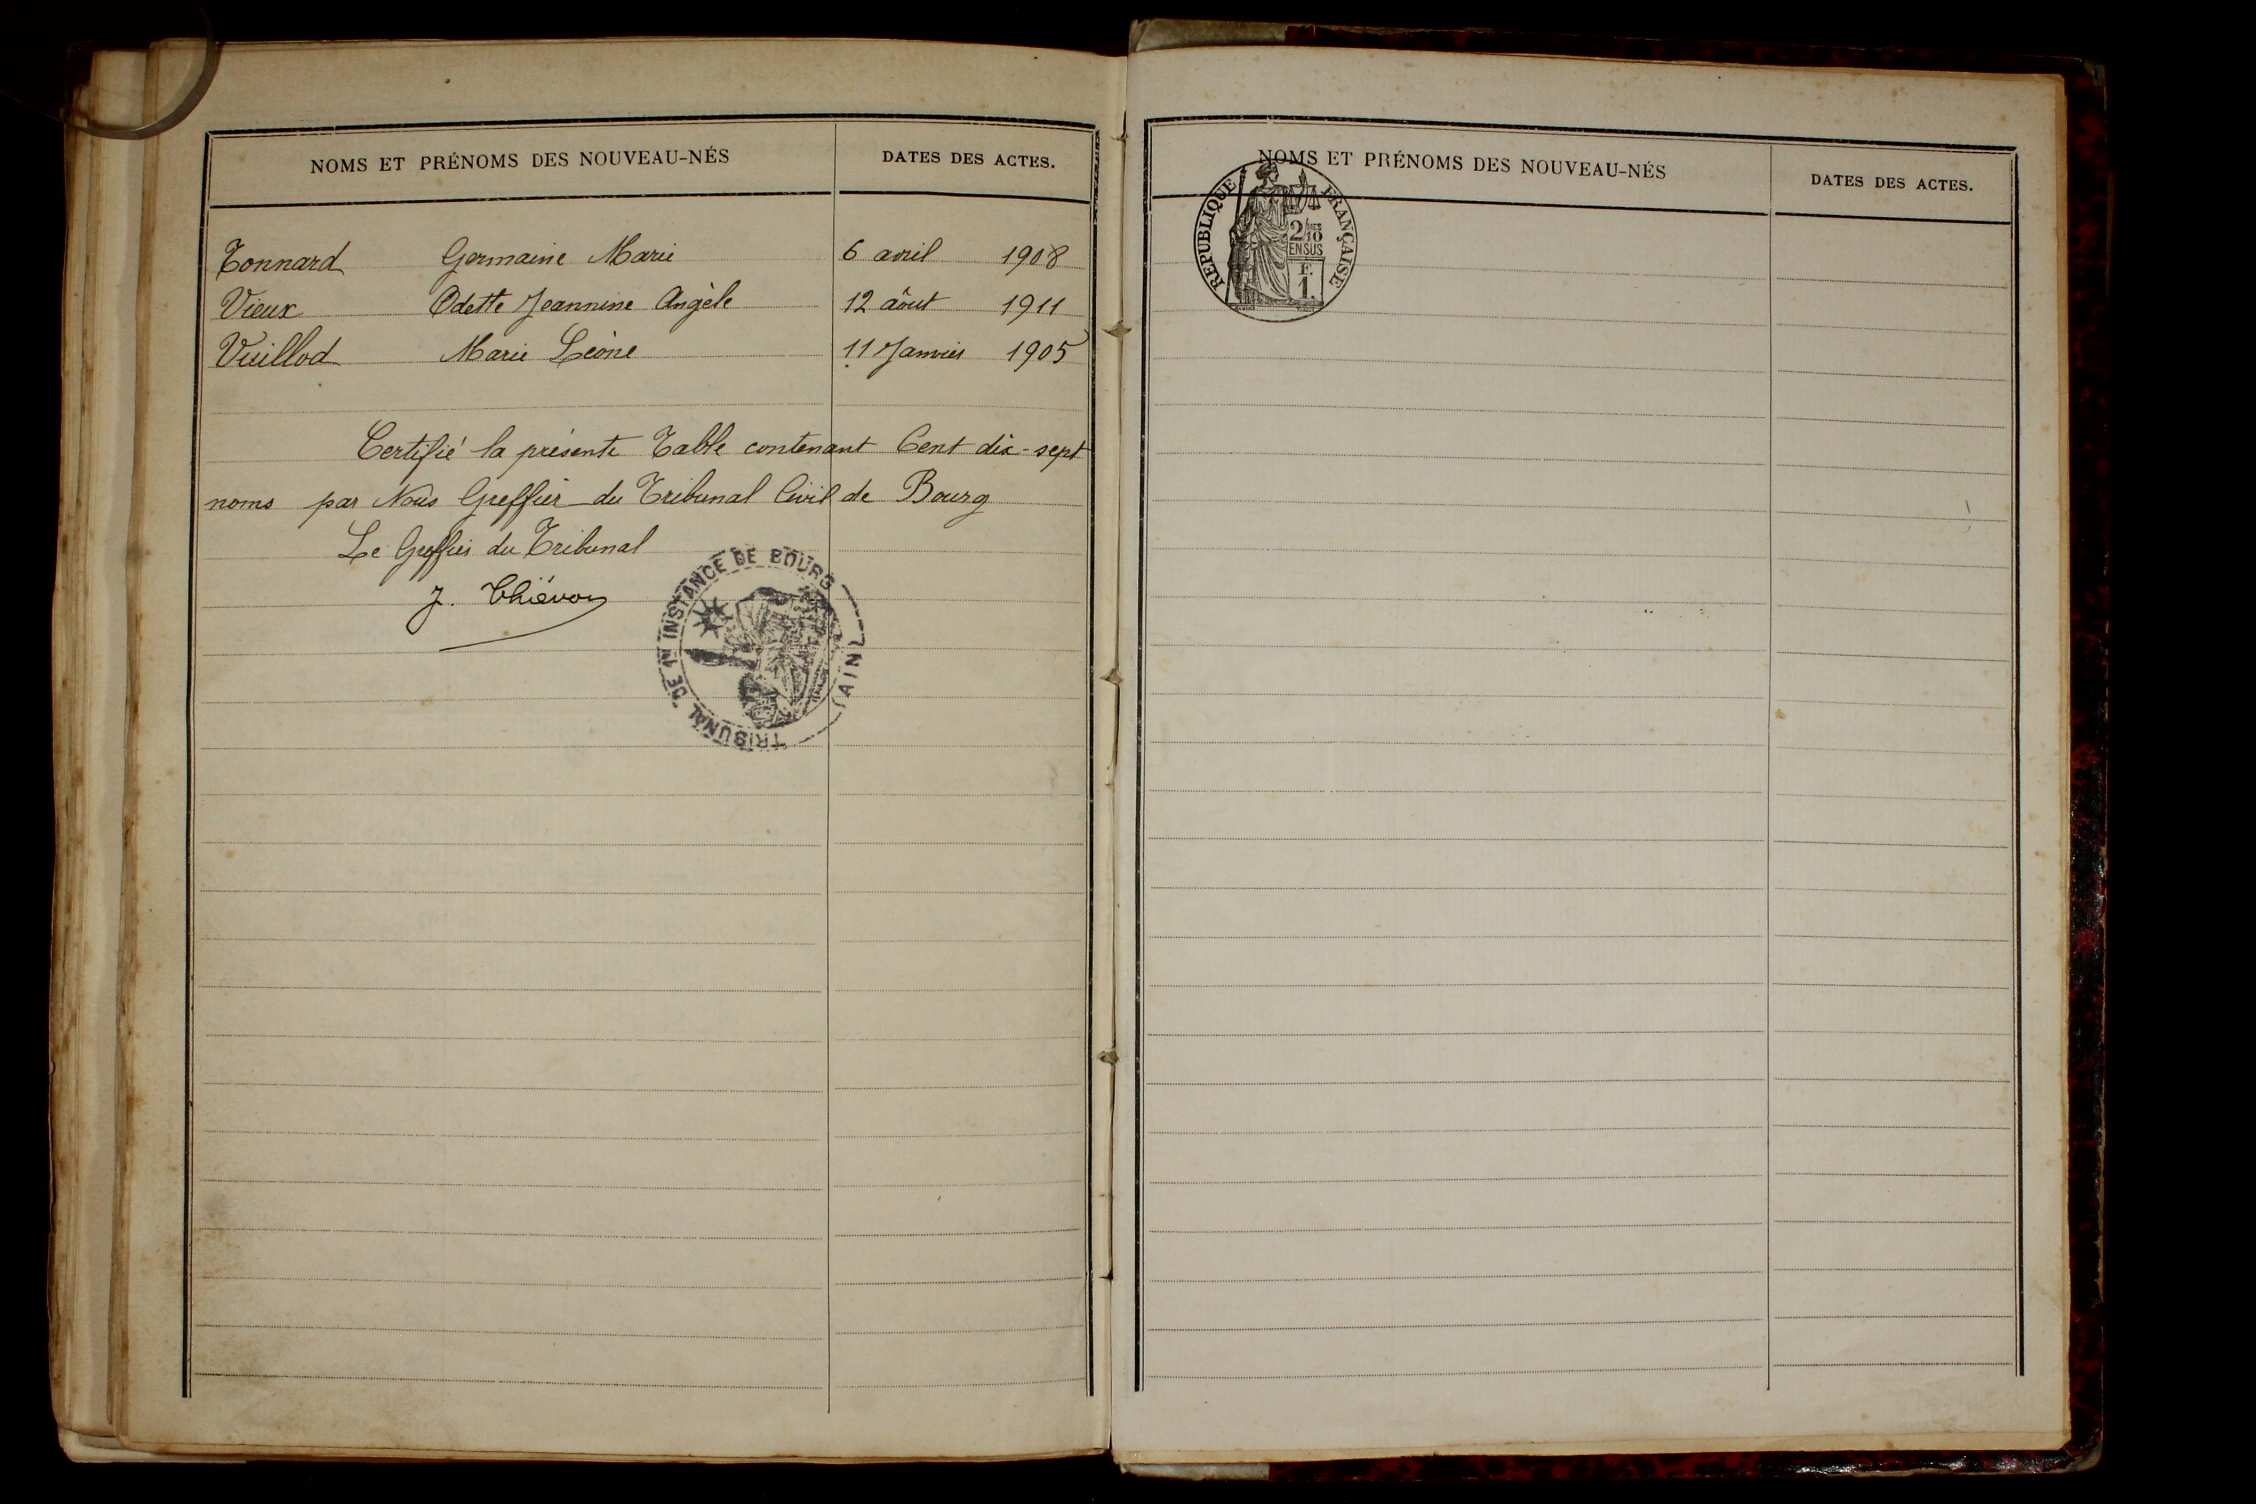 NOMS ET PRÉNOMS DES NOUVEAU-NÉS DATES DES ACTES.
Tonnard Germaine Marie 6 avril 1908
Vieux Odette Jeannine Angèle 12 aôut 1911
Vuillod Marie Léone 11 Janvier 1905
Certifié la présente Table contenant Cent dix-sept
noms par Nous Greffier du Tribunal Civil de Bourg
Le Greffier du Tribunal
J. Thiévon
TRIBUNAL DE 1re INSTANCE DE BOURG (AIN)
NOMS ET PRÉNOMS DES NOUVEAU-NÉS DATES DES ACTES.
REPUBLIQUE FRANÇAISE
2/10
EN SUS
F.
1.